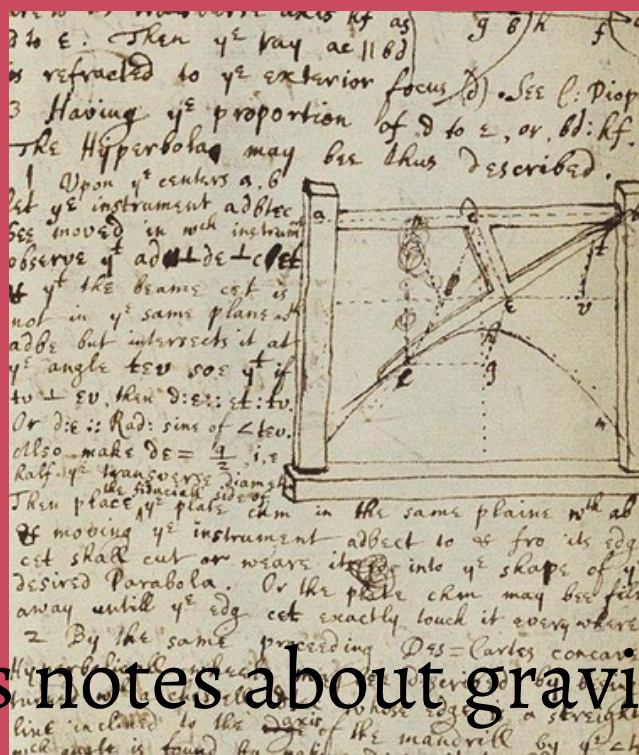 d to ε: Then yᵉ ray ac || bd
is refracted to yᵉ exterior focus (d). See C: Diop
3 Having yᵉ proportion of d to ε, or, bd: hf.
The Hyperbola may bee thus described.
1 Upon yᵉ centers a, b
let yᵉ instrument adbtec
bee moved in wch instrumᵗ
observe yᵗ ad⊥de⊥cet
yᵗ the beame cet is
not in yᵉ same plane wᵗʰ
adbe but intersects it at
yᵉ angle tev soe yᵗ if
tv ⊥ ev, then d:ε:: et:tv.
Or d:ε :: Rad: sine of ∠tev.
Also make de = q/2, i.e
half yᵉ transverse diameter
the fiducial side of
Then place yᵉ plate chm in the same plaine wᵗʰ ab
moving yᵉ instrument adbect to & fro its edg
cet shall cut or weare it into yᵉ shape of yᵉ
desired Parabola. Or the plate chm may bee file
away untill yᵉ edg cet exactly touch it every where
2 By the same proceeding Des=Cartes concave
whose edge a streight
line inclined to the axis of the mandrill by yᵉ ∠
s notes about gravi
a
c
e
h
g
t
v
m
g
h
f